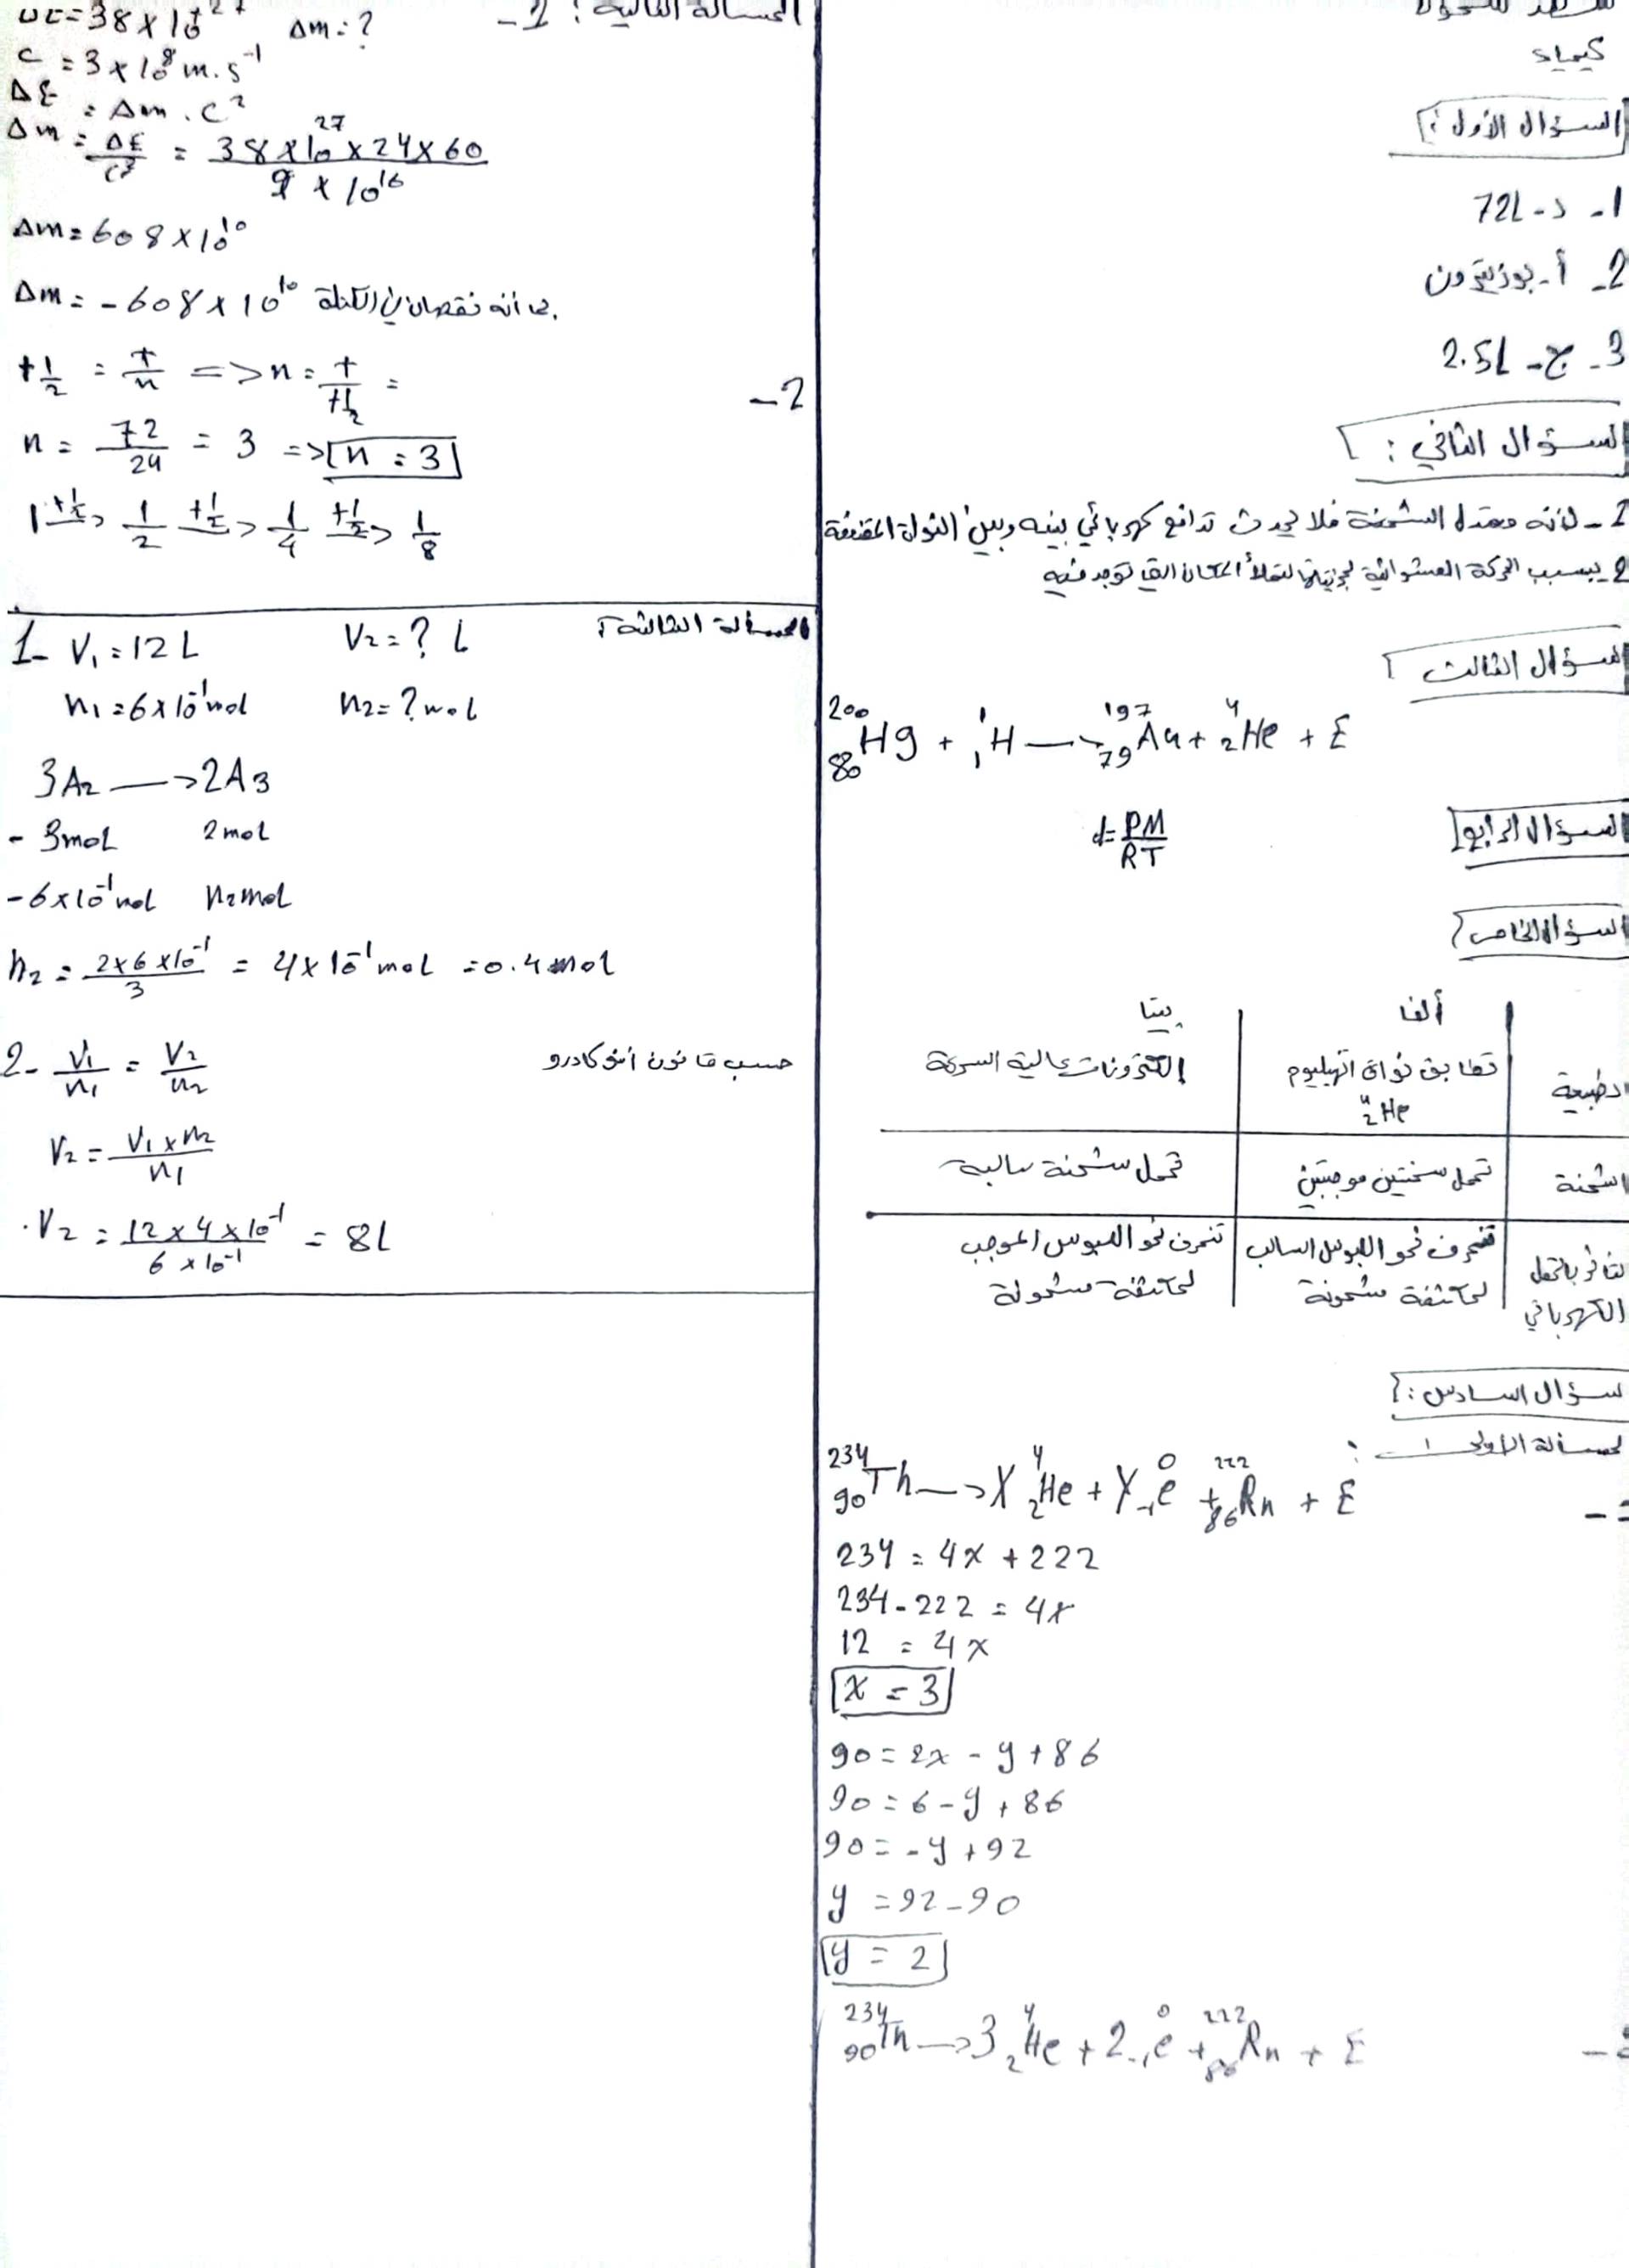 كيمياء
السؤال الأول:
1- د- 72L
2- أ- بوزيترون
3- ج- 2.5L
السؤال الثاني:
1- لأنه معتدل الشحنة فلا يحدث تدافع كهربائي بينه وبين النواة المقذوفة
2- بسبب الحركة العشوائية لجزيئاتها لتملأ المكان الذي توجد فيه
السؤال الثالث
²⁰⁰₈₀Hg + ¹₁H → ¹⁹⁷₇₉Au + ⁴₂He + E
السؤال الرابع
d = PM/RT
السؤال الخامس
ألفا بيتا
الطبيعة تطابق نواة الهيليوم ⁴₂He إلكترونات عالية السرعة
الشحنة تحمل شحنتين موجبتين تحمل شحنة سالبة
التأثر بالحقل الكهربائي تنحرف نحو اللبوس السالب لمكثفة مشحونة تنحرف نحو اللبوس الموجب لمكثفة مشحونة
السؤال السادس:
المسألة الأولى:
²³⁴₉₀Th → X ⁴₂He + Y ⁰₋₁e + ²²²₈₆Rn + E
234 = 4x + 222
234 - 222 = 4x
12 = 4x
x = 3
90 = 2x - y + 86
90 = 6 - y + 86
90 = -y + 92
y = 92 - 90
y = 2
²³⁴₉₀Th → 3 ⁴₂He + 2 ⁰₋₁e + ²²²₈₆Rn + E
المسألة الثانية: 1-
ΔE = 38 × 10⁺²⁷ Δm = ?
c = 3 × 10⁸ m.s⁻¹
ΔE = Δm . c²
Δm = ΔE/c² = 38 × 10²⁷ × 24 × 60 / 9 × 10¹⁶
Δm = 608 × 10¹⁰
Δm = - 608 × 10¹⁰ بما أنه نقصان في الكتلة
2-
t½ = t/n => n = t/t½ =
n = 72/24 = 3 => n = 3
1 t½→ 1/2 t½→ 1/4 t½→ 1/8
المسألة الثالثة:
1- V₁ = 12 L V₂ = ? L
n₁ = 6 × 10⁻¹ mol n₂ = ? mol
3A₂ → 2A₃
- 3mol 2mol
- 6 × 10⁻¹ mol n₂ mol
n₂ = 2×6×10⁻¹/3 = 4 × 10⁻¹ mol = 0.4 mol
2- V₁/n₁ = V₂/n₂ حسب قانون أفوكادرو
V₂ = V₁ × n₂/n₁
V₂ = 12 × 4 × 10⁻¹ / 6 × 10⁻¹ = 8L